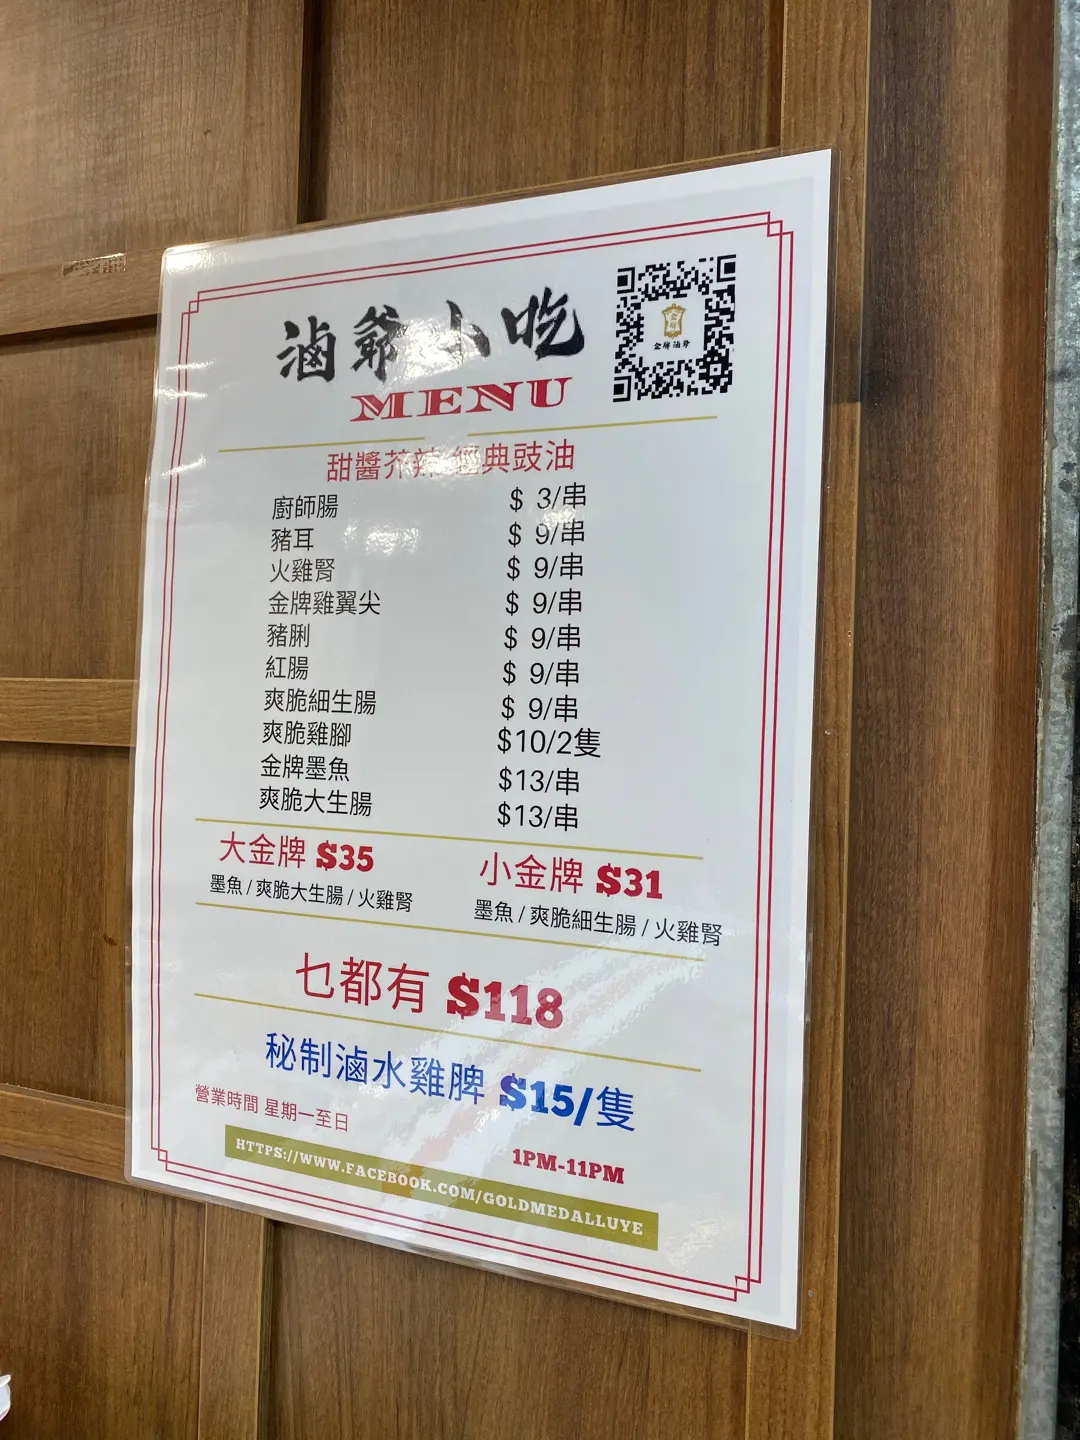 滷爺小吃
MENU
金牌滷爺
甜醬芥辣 經典豉油
廚師腸 $ 3/串
豬耳 $ 9/串
火雞腎 $ 9/串
金牌雞翼尖 $ 9/串
豬脷 $ 9/串
紅腸 $ 9/串
爽脆細生腸 $ 9/串
爽脆雞腳 $10/2隻
金牌墨魚 $13/串
爽脆大生腸 $13/串
大金牌 $35
墨魚 / 爽脆大生腸 / 火雞腎
小金牌 $31
墨魚 / 爽脆細生腸 / 火雞腎
乜都有 $118
秘制滷水雞脾 $15/隻
營業時間 星期一至日
1PM-11PM
HTTPS://WWW.FACEBOOK.COM/GOLDMEDALLUYE